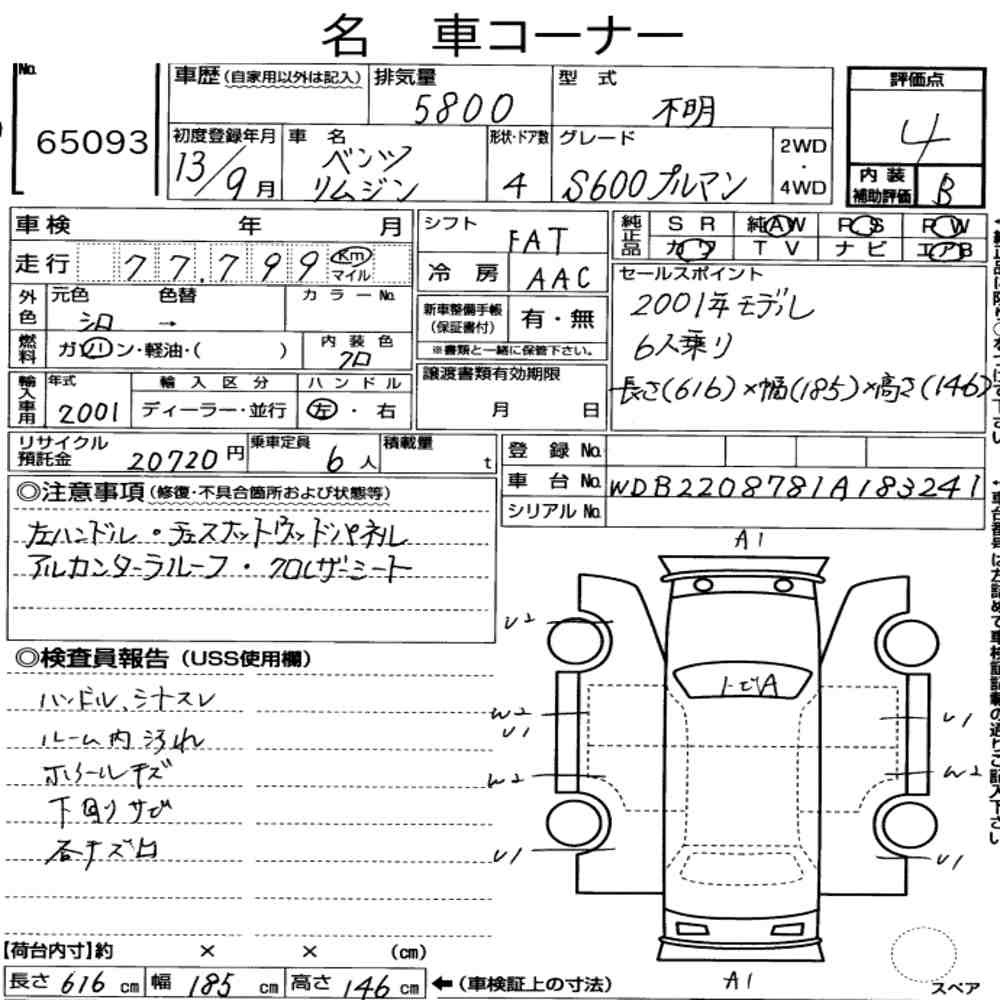 名 車コーナー
No.
65093
車歴(自家用以外は記入)
排気量
5800
型 式
不明
評価点
4
初度登録年月
13/9月
車 名
ベンツ
リムジン
形状・ドア数
4
グレード
S600プルマン
2WD
・
4WD
内 装
補助評価
B
車検 年 月
走行 77,799 Km
マイル
シフト
FAT
冷 房
AAC
純正品
SR 純AW PS PW
カワ TV ナビ エアB
外色
元色 色替
シロ →
カラーNo.
新車整備手帳
(保証書付)
有・無
※書類と一緒に保管下さい。
セールスポイント
2001年モデル
6人乗り
長さ(616)×幅(185)×高さ(146)
燃料
ガソリン・軽油・( )
内 装 色
クロ
輸入車用
年式
2001
輸入区分
ディーラー・並行
ハンドル
左・右
譲渡書類有効期限
月 日
リサイクル
預託金
20720円
乗車定員
6人
積載量
t
登 録 No.
車 台 No.
WDB2208781A183241
シリアル No.
◎注意事項(修復・不具合箇所および状態等)
左ハンドル・チェスナットウッドパネル
アルカンターラルーフ・クロレザーシート
◎検査員報告(USS使用欄)
ハンドル、シナスレ
ルーム内汚れ
ホイールキズ
下回りサビ
各キズ凹
A1
U2
トビA
W2
U1
U1
W2
W2
U1
U1
A1
スペア
【荷台内寸】約 × × (cm)
長さ 616 cm 幅 185 cm 高さ 146 cm ←(車検証上の寸法)